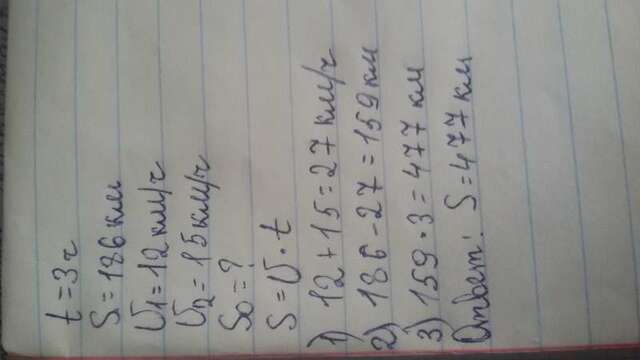 t = 3 ч
S = 186 км
υ1 = 12 км/ч
υ2 = 15 км/ч
S0 = ?
S = υ · t
1) 12 + 15 = 27 км/ч
2) 186 - 27 = 159 км
3) 159 · 3 = 477 км
Ответ: S = 477 км